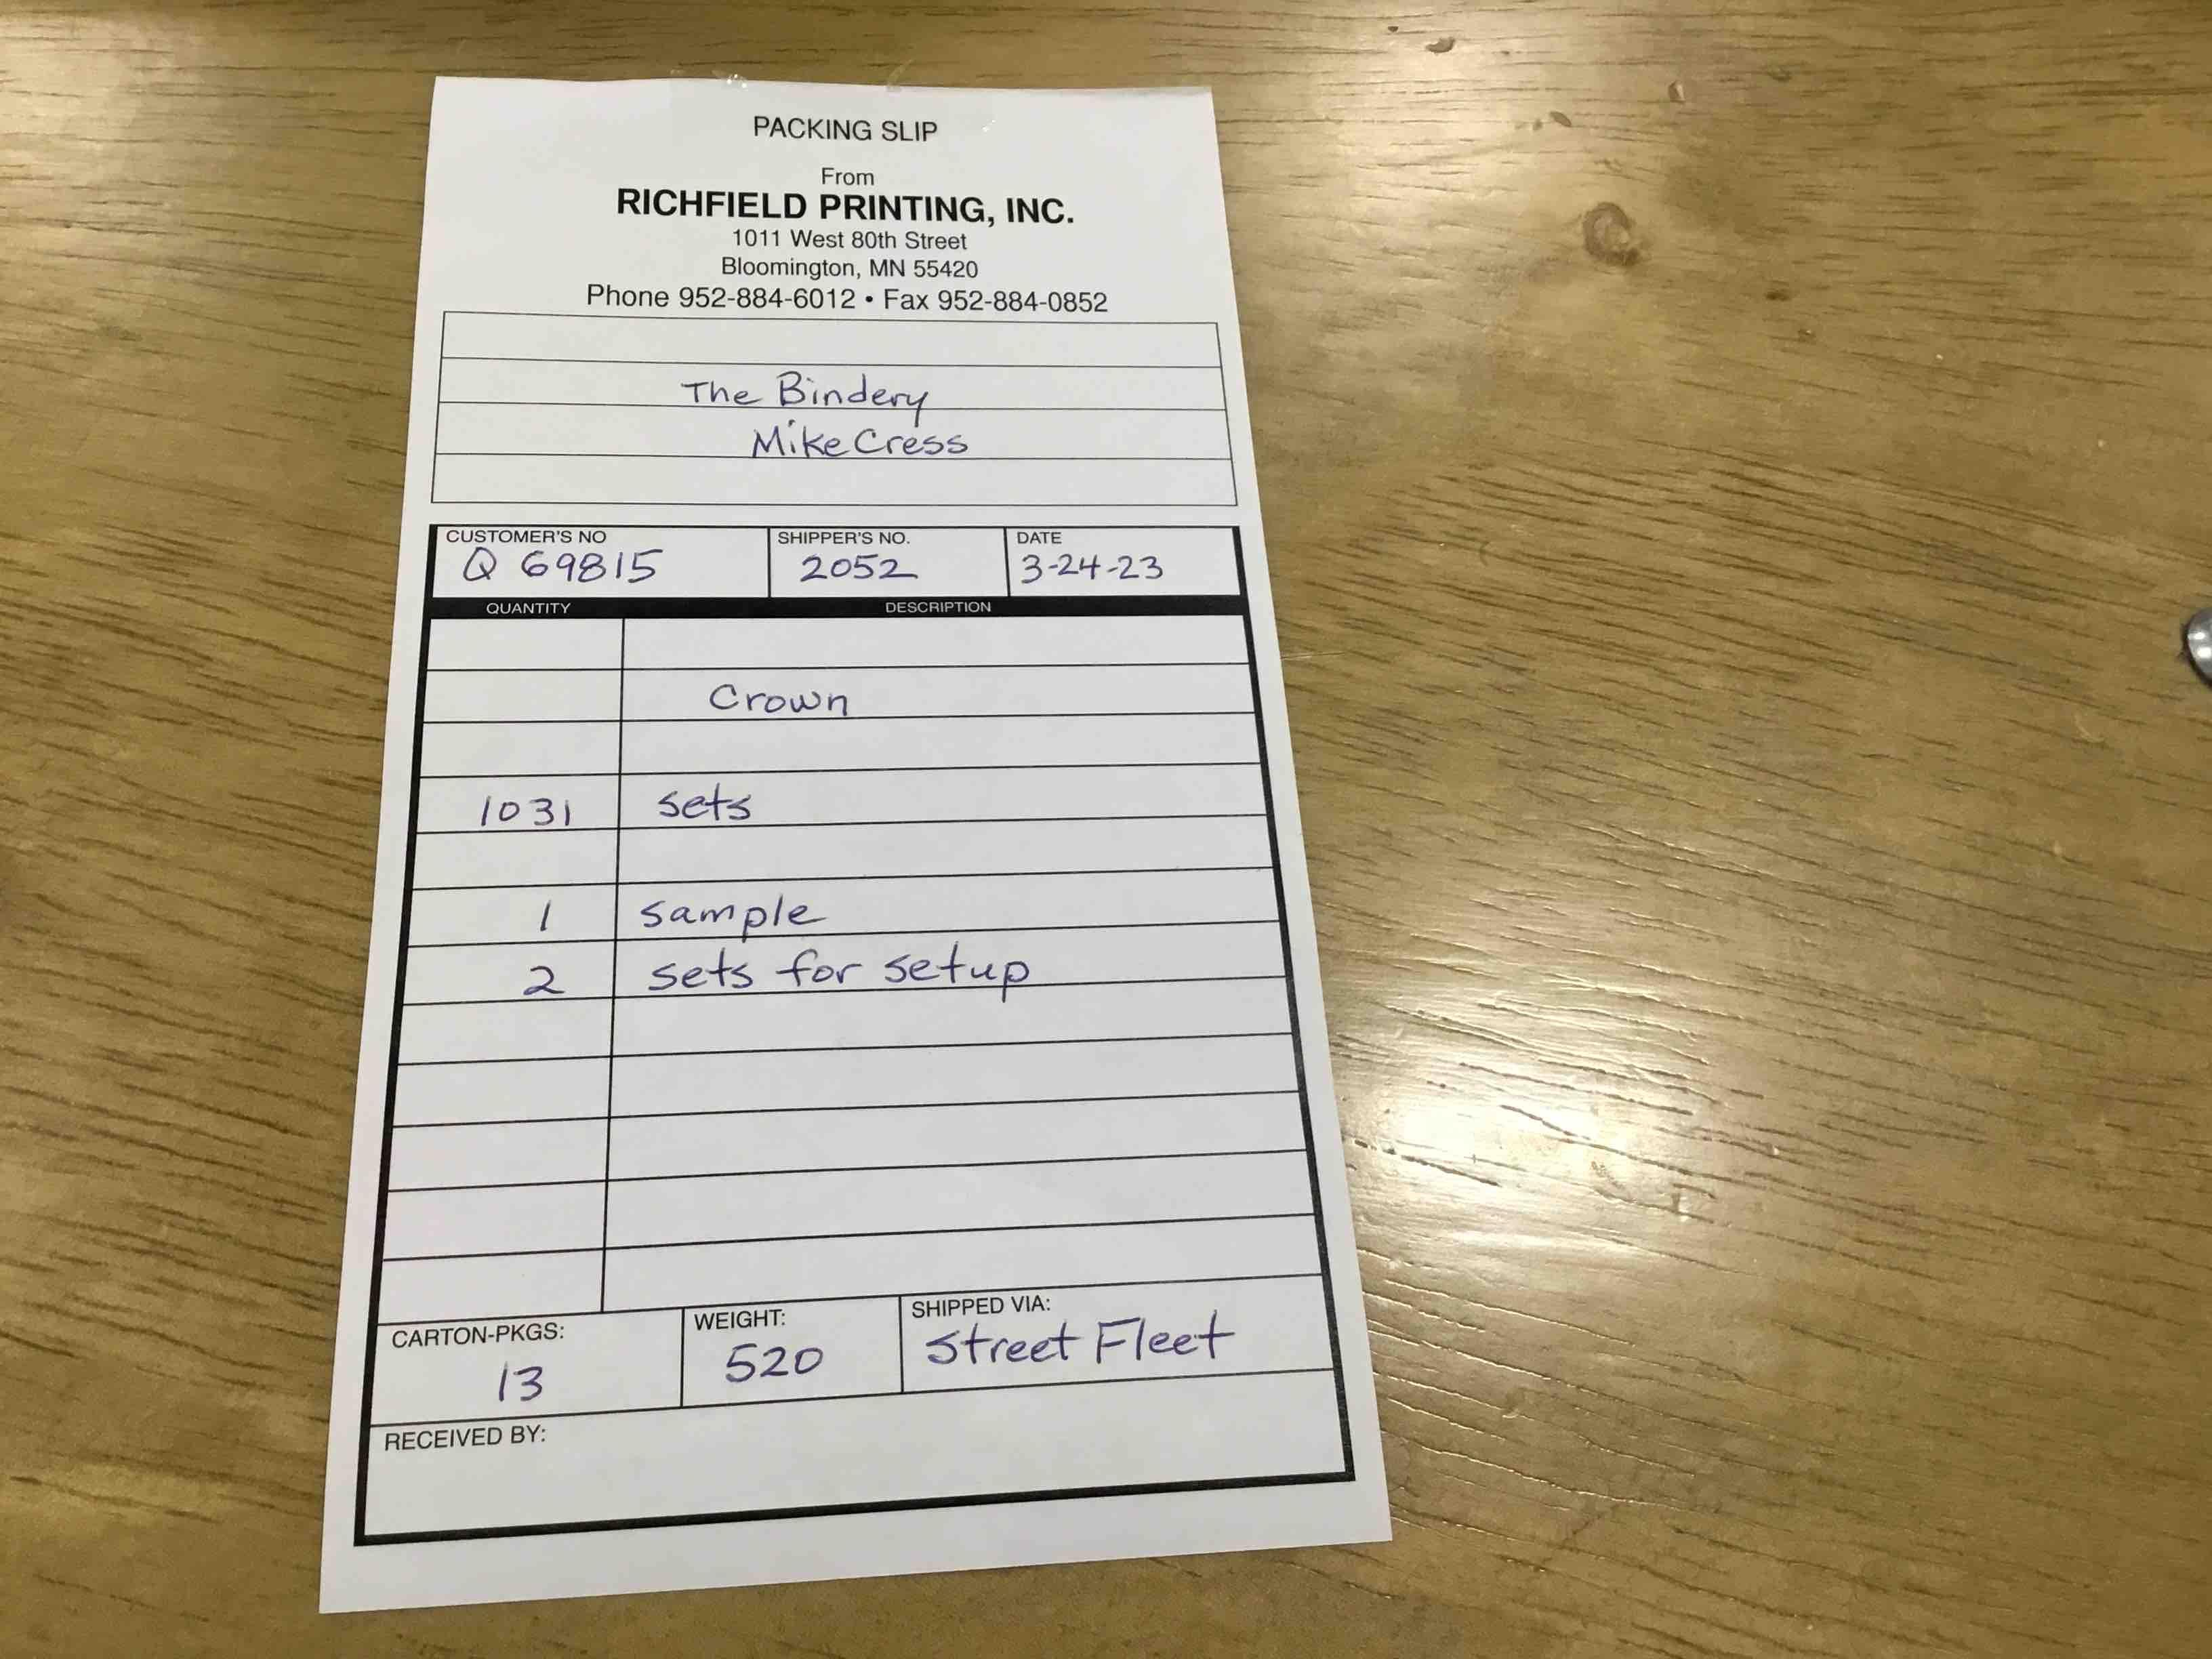 PACKING SLIP
From
RICHFIELD PRINTING, INC.
1011 West 80th Street
Bloomington, MN 55420
Phone 952-884-6012 • Fax 952-884-0852
The Bindery
Mike Cress
CUSTOMER'S NO SHIPPER'S NO. DATE
Q 69815 2052 3-24-23
QUANTITY DESCRIPTION
Crown
1031 sets
1 sample
2 sets for setup
CARTON-PKGS: WEIGHT: SHIPPED VIA:
13 520 Street Fleet
RECEIVED BY: